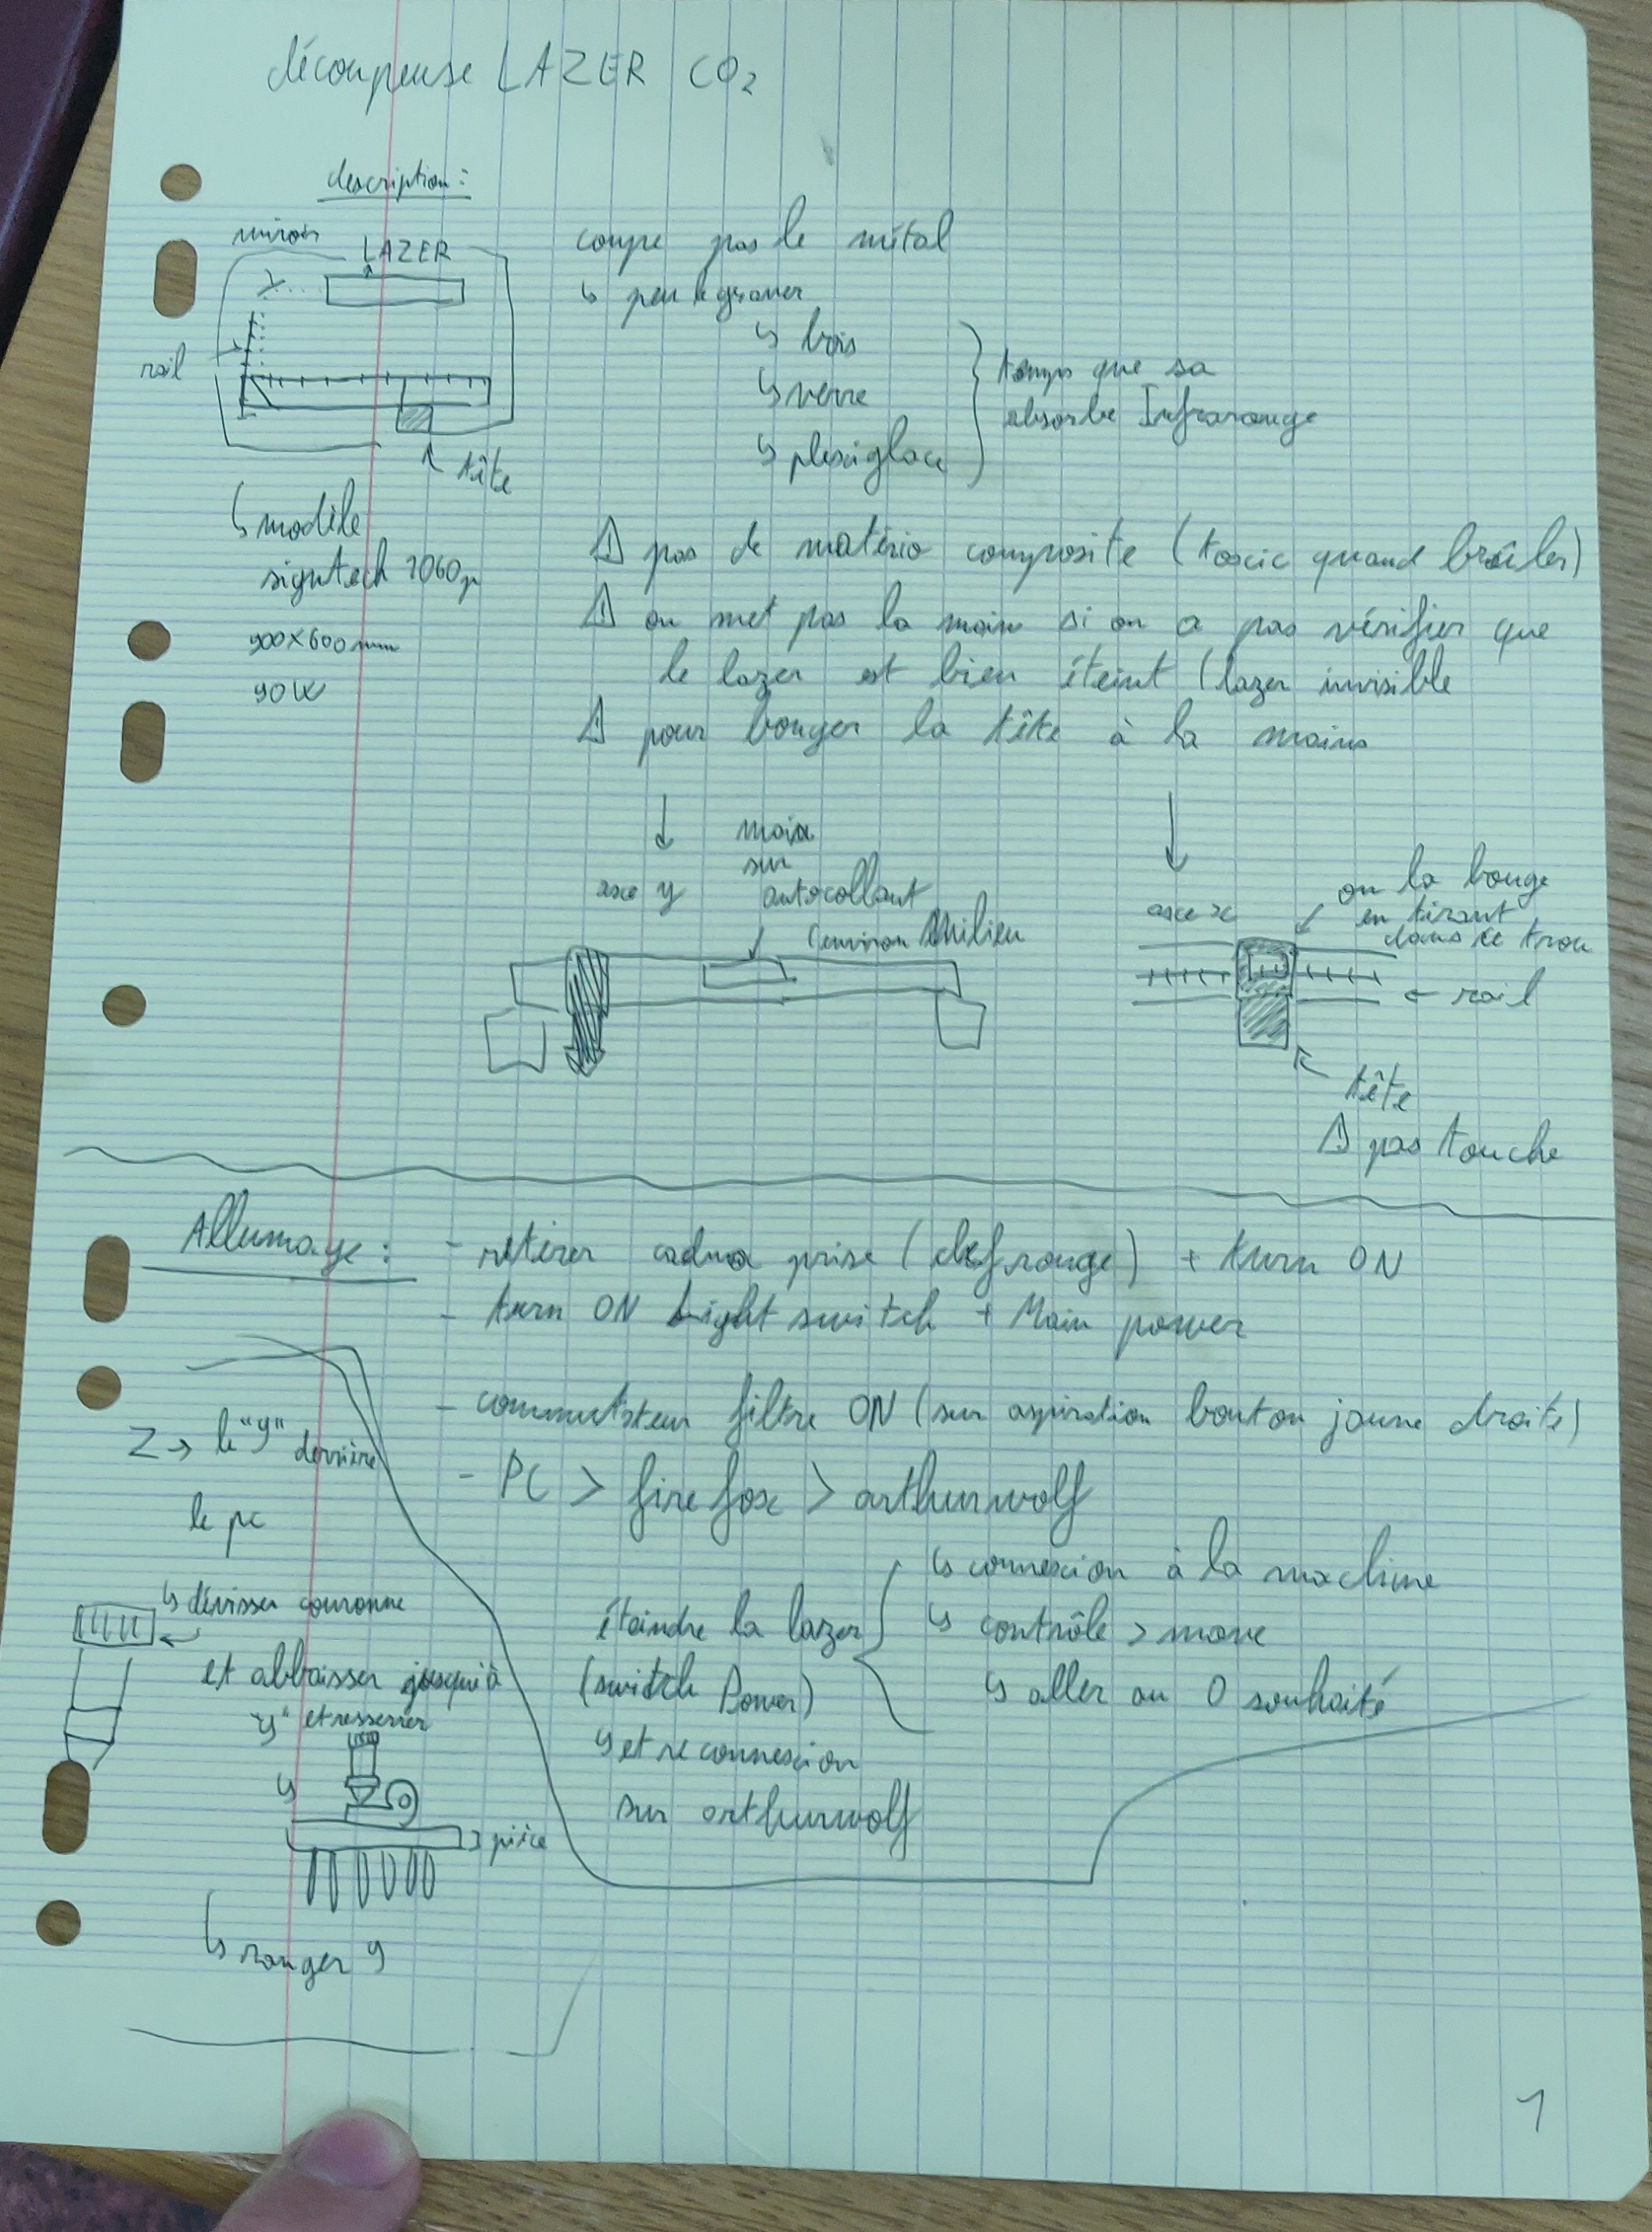 découpeuse LAZER CO2
description:
miroir
LAZER
rail
tête
coupe pas le métal
↳ peu graver
↳ bois
↳ verre
↳ plexiglace
temps que sa
absorbe Infrarouge
↳ modèle
signtech 1060
900x600mm
90W
⚠ pas de matério composite (toxic quand brûler)
⚠ on met pas la main si on a pas vérifier que
le lazer est bien éteint (lazer invisible
⚠ pour bouger la tête à la mains
axe y
main
sur
autocollant
(environ Milieu
axe x
on la bouge
en tirant
dans ce trou
← rail
tête
⚠ pas touche
Allumage:
- retirer cadna prise (clef rouge) + turn ON
- turn ON Light switch + Main power
- commutateur filtre ON (sur aspiration bouton jaune droite)
- PC > firefox > arthurwolf
↳ connexion à la machine
↳ contrôle > move
↳ aller au 0 souhaité
éteindre la lazer
(switch Power)
↳ et reconnexion
sur arthurwolf
Z → le "y" derrière
le pc
↳ dévisser couronne
et abbaisser jusqu'à
"y" et resserrer
↳
pièce
↳ ranger y
1